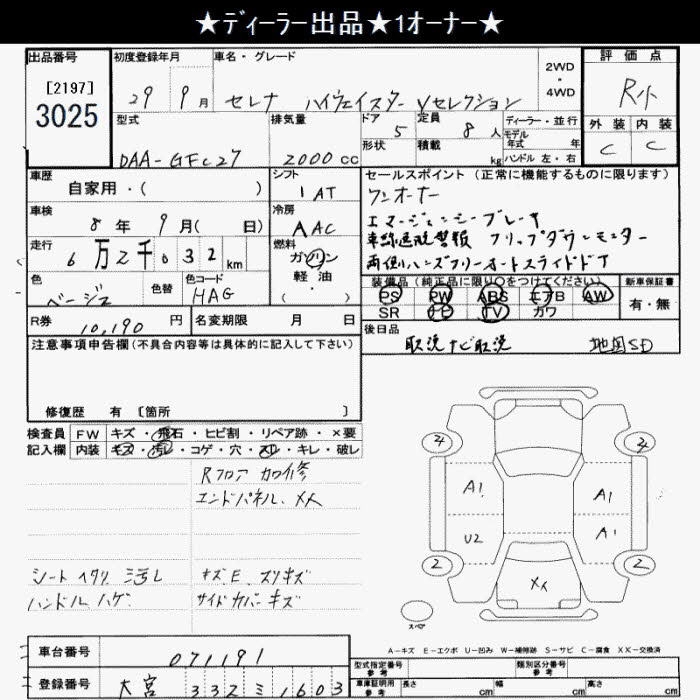 ★ディーラー出品★1オーナー★
出品番号 初度登録年月 車名・グレード 2WD・4WD 評価点
[2197]
3025
29 9月 セレナ ハイウェイスター Vセレクション R小
外装 内装
C C
型式 排気量 ドア 5 定員 8人 ディーラー・並行
モデル年式 年
形状 積載 kg ハンドル 左・右
DAA-GFC27 2000cc
車歴 シフト セールスポイント (正常に機能するものに限ります)
自家用・( ) 1AT ワンオーナー
車検 冷房 エマージェンシーブレーキ
8年 9月( 日) AAC 車線逸脱警報 フリップダウンモニター
走行 6万2千032km 燃料 ガソリン 軽油・( ) 両側ハンズフリーオートスライドドア
色 色替 色コード
ベージュ HAG
装備品(純正品に限り○をつけてください) 新車保証書
PS PW ABS エアB AW 有・無
SR ナビ TV カワ
R券 10,190円 名変期限 月 日 後日品
取説 ナビ取説 地図SD
注意事項申告欄(不具合内容等は具体的に記入して下さい)
修復歴 有 [箇所 ]
検査員 FW キズ・飛石・ヒビ割・リペア跡・×要
記入欄 内装 キズ・汚レ・コゲ・穴・スレ・キレ・破レ
Rフロア カワ修
エンドパネル、XX
シート ヘタリ 汚レ キズE、スリキズ
ハンドル ハゲ サイドカバー キズ
4 4
A1 A1
U2 A1
2 2
XX
スペア
A-キズ E-エクボ U-凹み W-補修跡 S-サビ C-腐食 XX-交換済
車台番号 071191
型式指定番号 参考 類別区分番号 参考
登録番号 大宮 332 ミ 1603
車庫証明用 参考 長さ cm 幅 cm 高さ cm